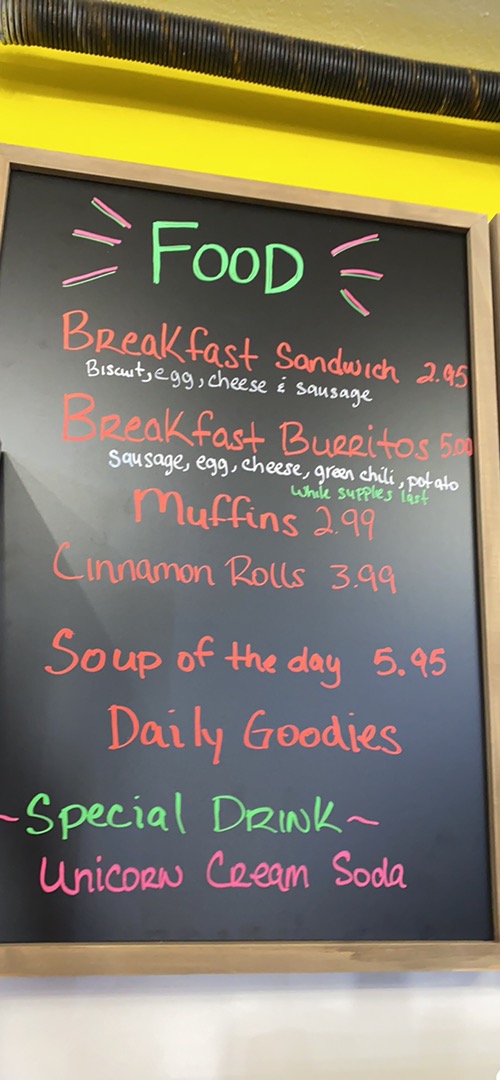 FOOD
Breakfast Sandwich 2.95
Biscuit, egg, cheese & sausage
Breakfast Burritos 5.00
sausage, egg, cheese, green chili, potato
while supplies last
Muffins 2.99
Cinnamon Rolls 3.99
Soup of the day 5.95
Daily Goodies
~Special DRINK~
Unicorn Cream Soda